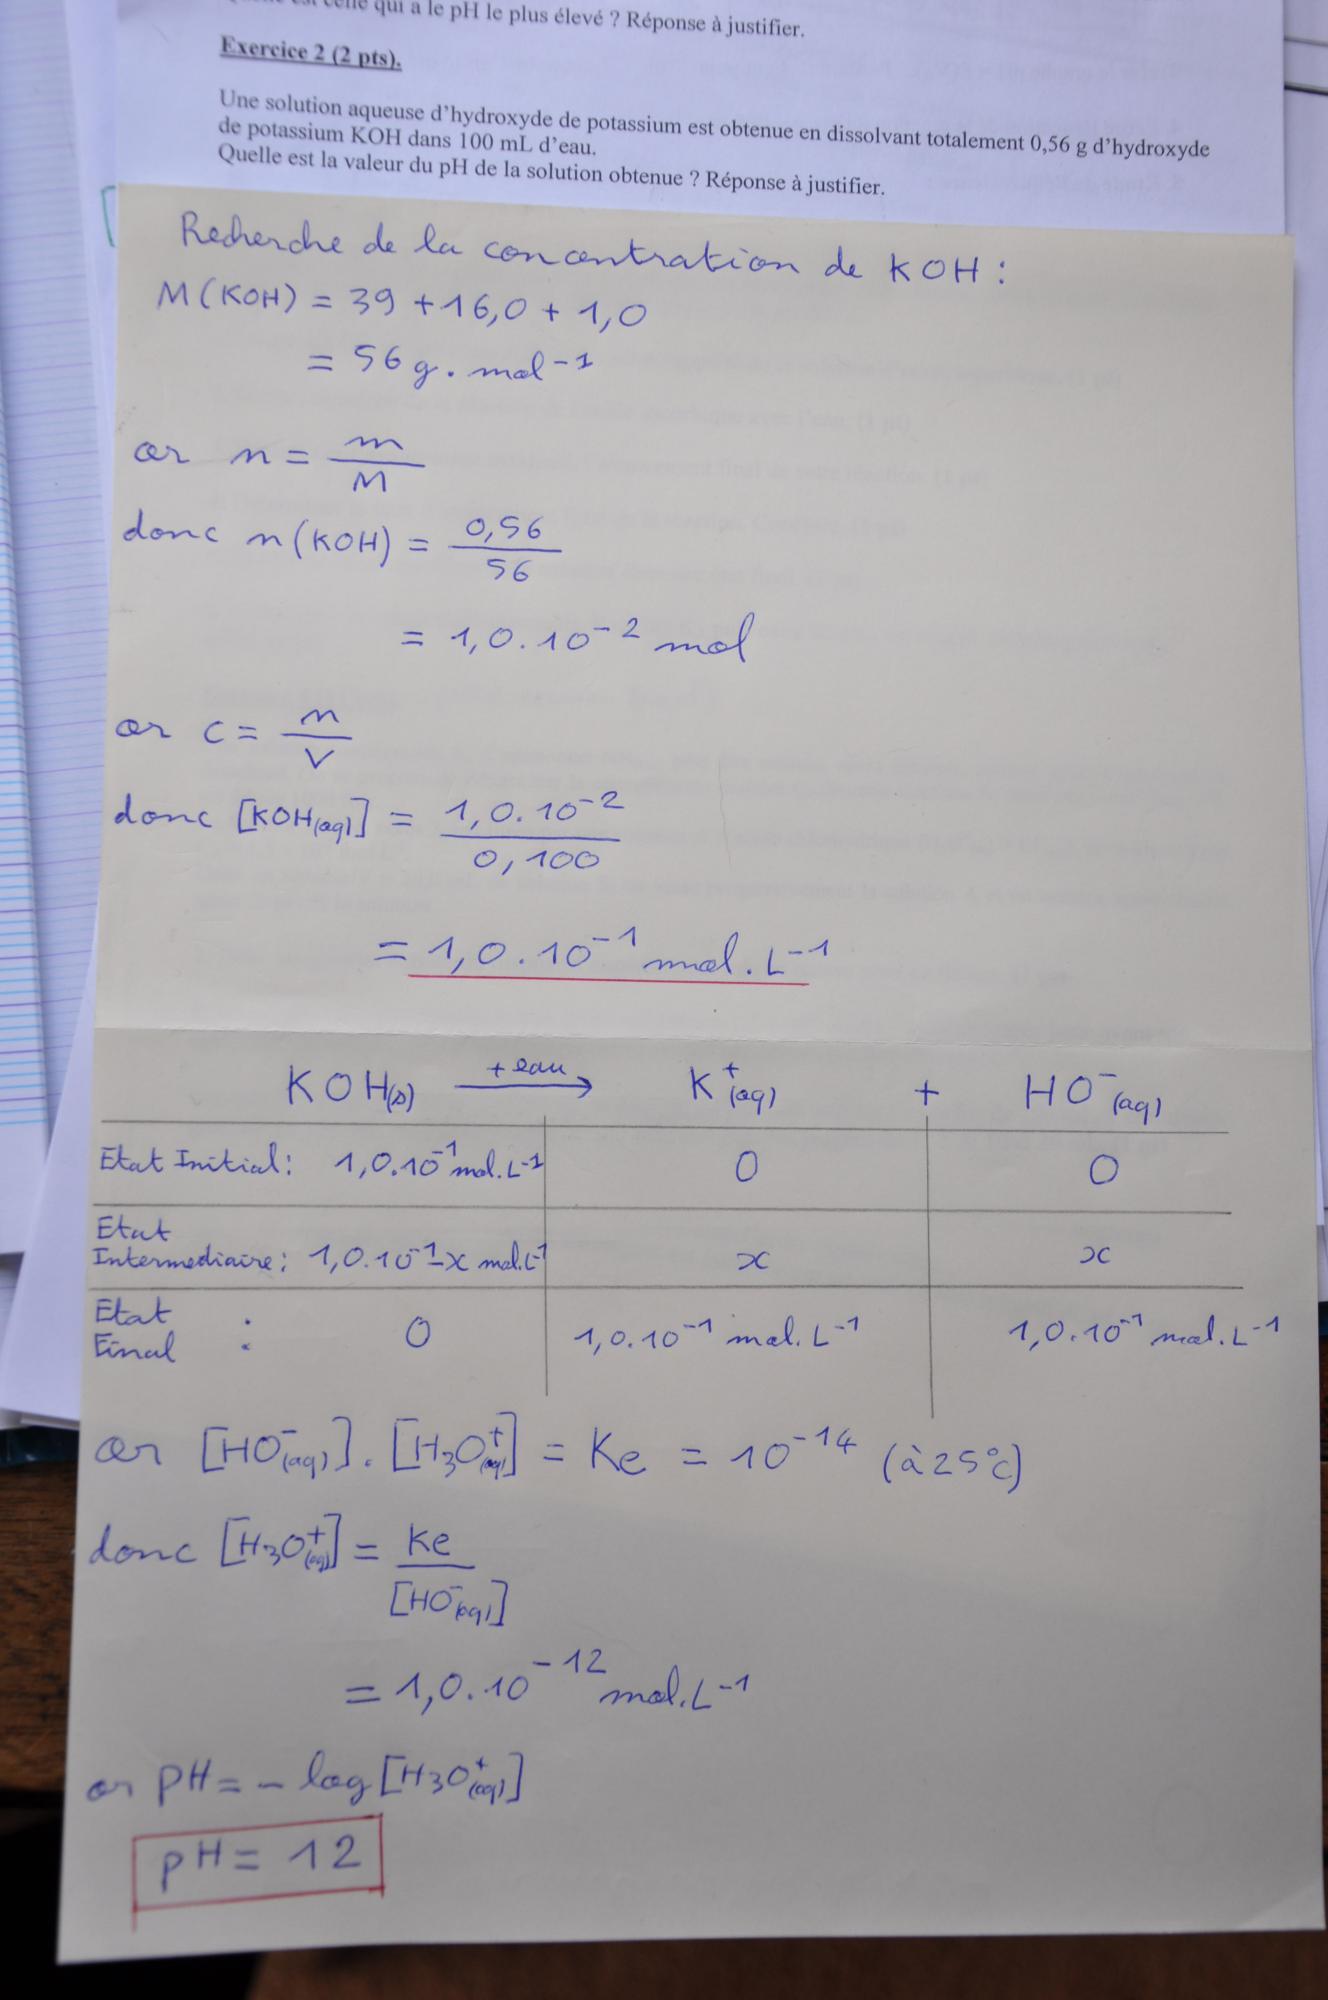 qui a le pH le plus élevé ? Réponse à justifier.
Exercice 2 (2 pts).
Une solution aqueuse d'hydroxyde de potassium est obtenue en dissolvant totalement 0,56 g d'hydroxyde
de potassium KOH dans 100 mL d'eau.
Quelle est la valeur du pH de la solution obtenue ? Réponse à justifier.
Recherche de la concentration de KOH :
M(KOH) = 39 + 16,0 + 1,0
= 56 g. mol-1
or n = m/M
donc n(KOH) = 0,56/56
= 1,0.10^-2 mol
or c = n/V
donc [KOH(aq)] = 1,0.10^-2/0,100
= 1,0.10^-1 mol.L^-1
KOH(s) + eau → K+(aq) + HO-(aq)
Etat Initial : 1,0.10^-1 mol.L^-1 0 0
Etat
Intermediaire : 1,0.10^-1-x mol.L^-1 x x
Etat
Final : 0 1,0.10^-1 mol.L^-1 1,0.10^-1 mol.L^-1
or [HO-(aq)].[H3O+(aq)] = Ke = 10^-14 (à 25°c)
donc [H3O+(aq)] = Ke/[HO-(aq)]
= 1,0.10^-12 mol.L^-1
or pH = - log [H3O+(aq)]
pH = 12